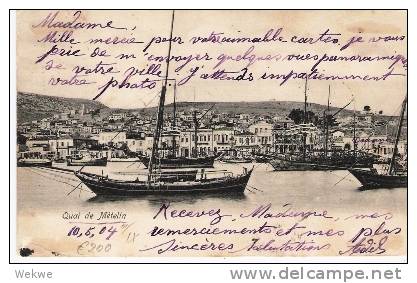 Madame,
Mille mercis pour votre aimable carte, je vous
prie de m'envoyer quelques vues panoramiques
de votre ville j'attends impatiemment
votre photo
Quai de Mételin
10, 5, 04
€200
Recevez Madame, mes
remerciements et mes plus
sincères Salutations
Wekwe
www.delcampe.net